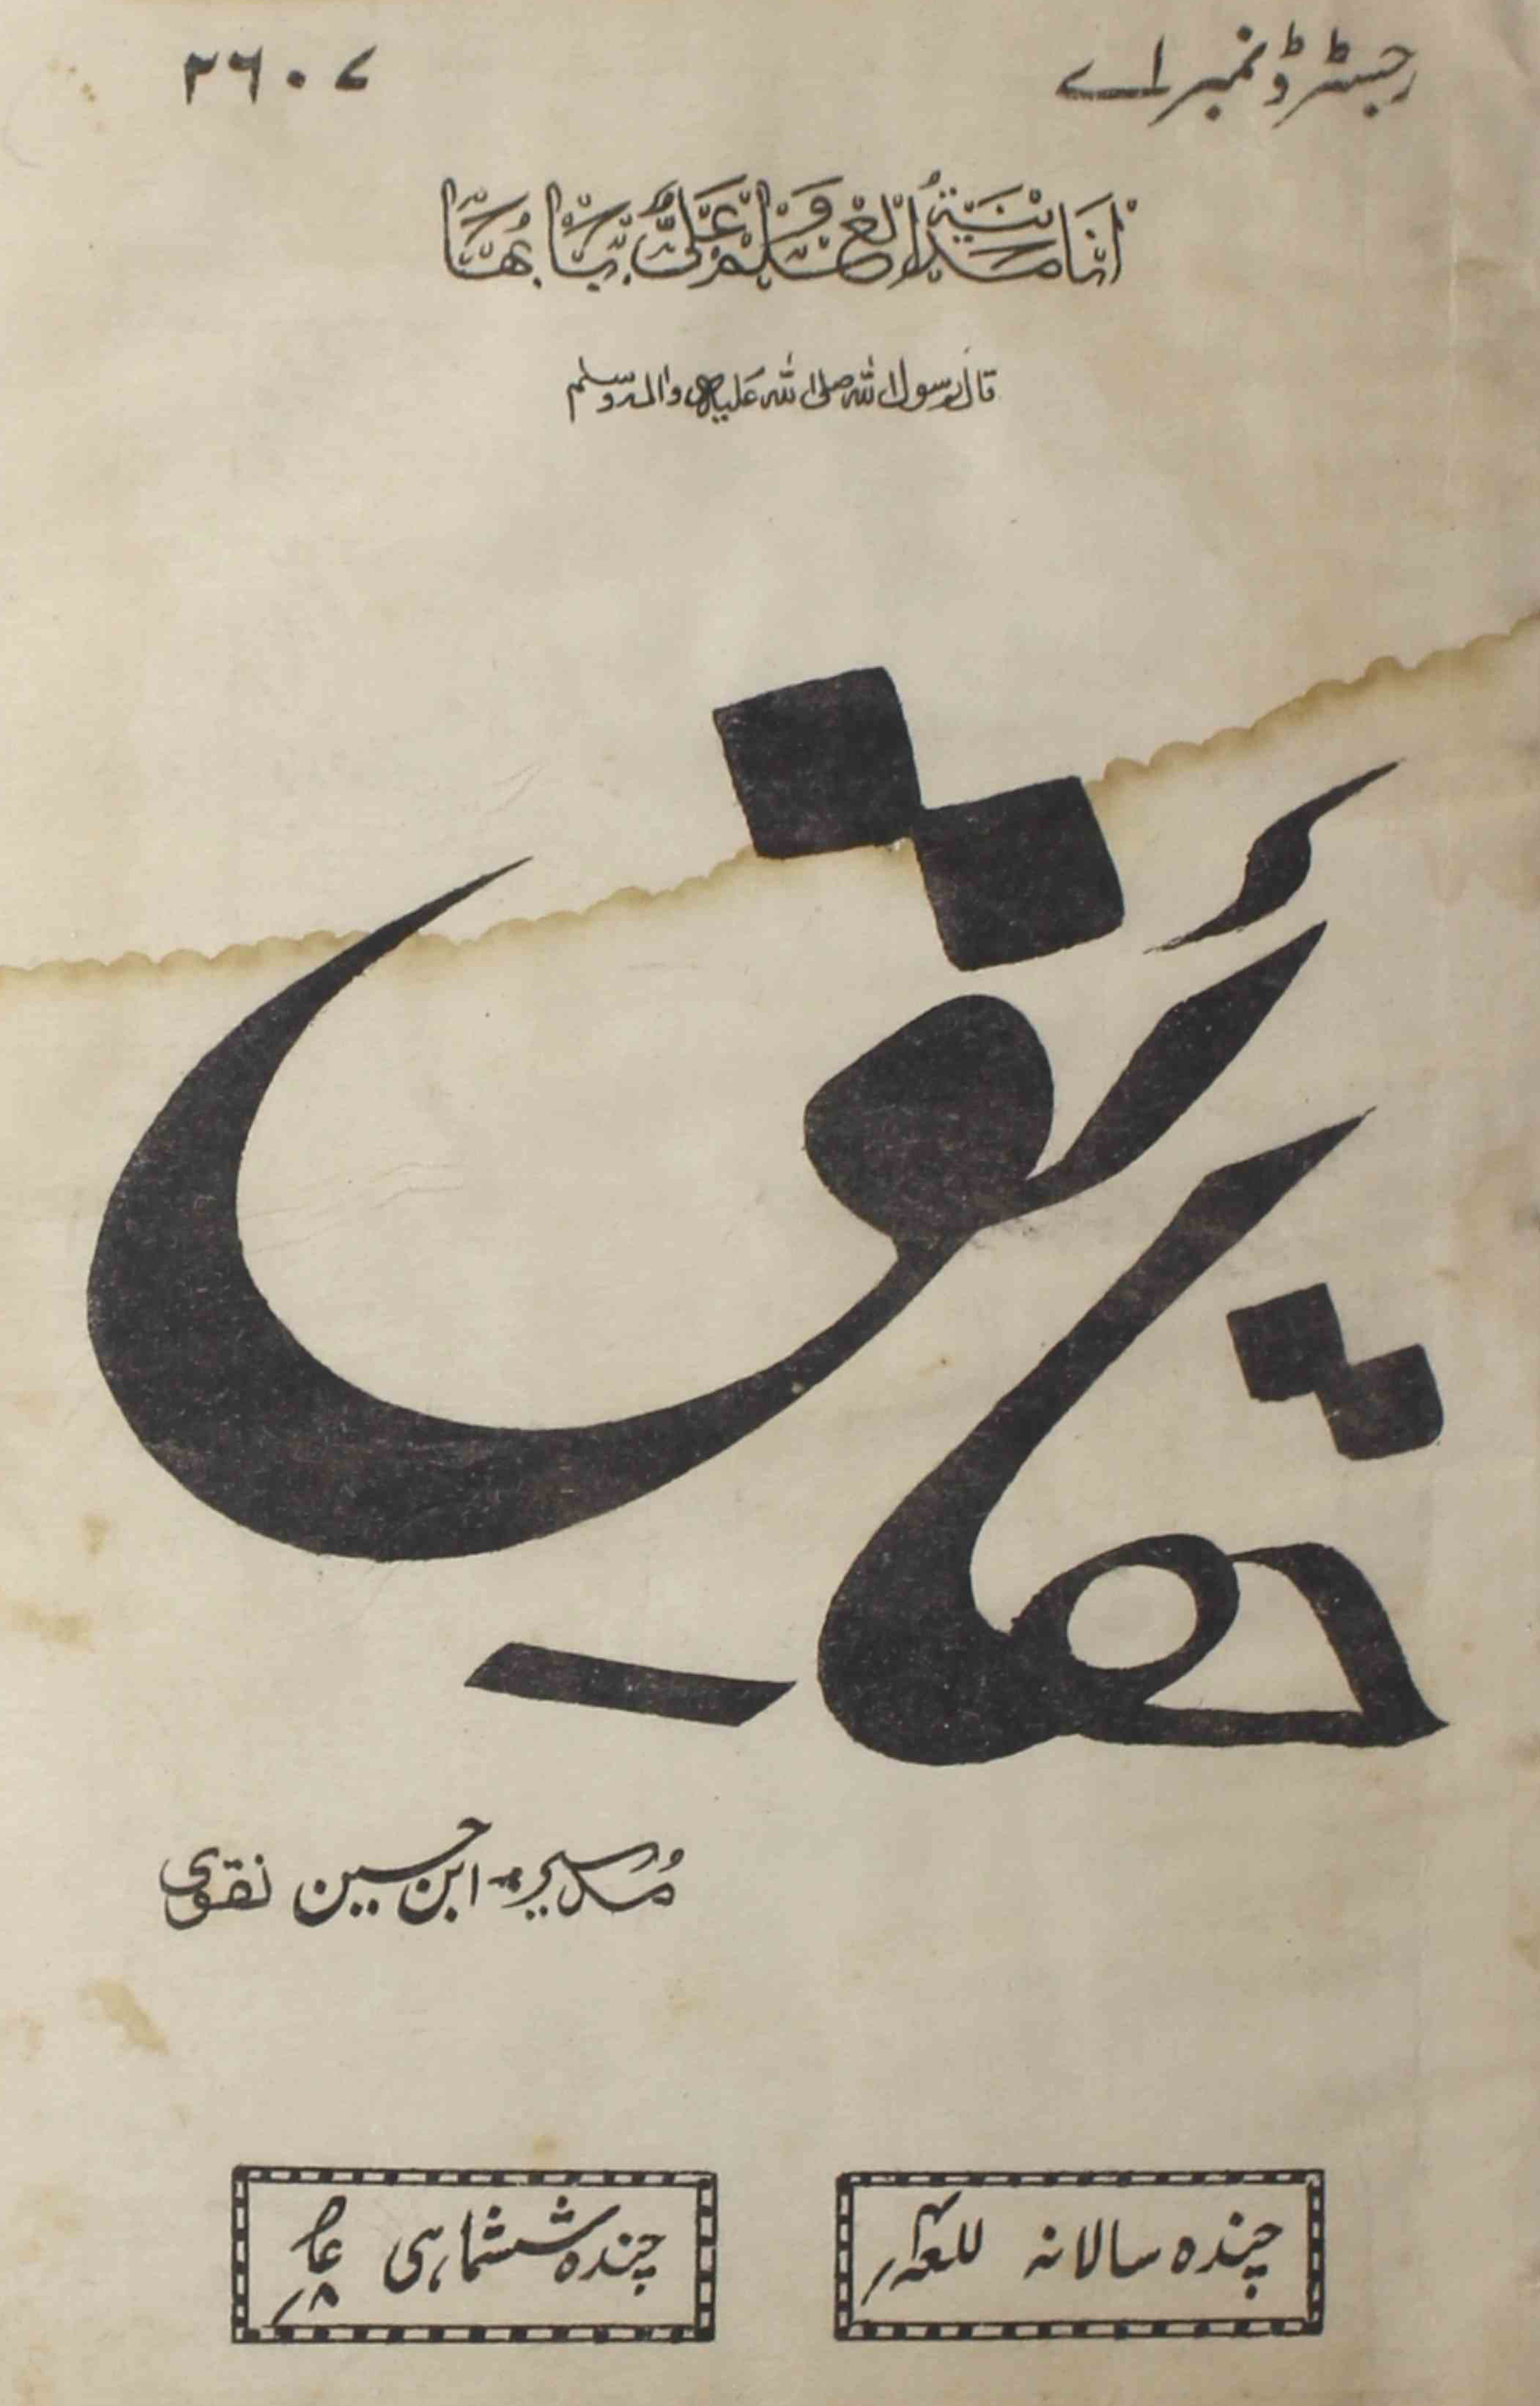 رجسٹرڈ نمبر اے ۲۶۰۷
اَنَا مَدِیْنَۃُ الْعِلْمِ وَ عَلِیٌّ بَابُهَا
قال رسول اللہ صلی اللہ علیہ واٰلہ وسلم
حقائق
مُدیر۔ ابن حسین نقوی
چندہ سالانہ
چندہ ششماہی